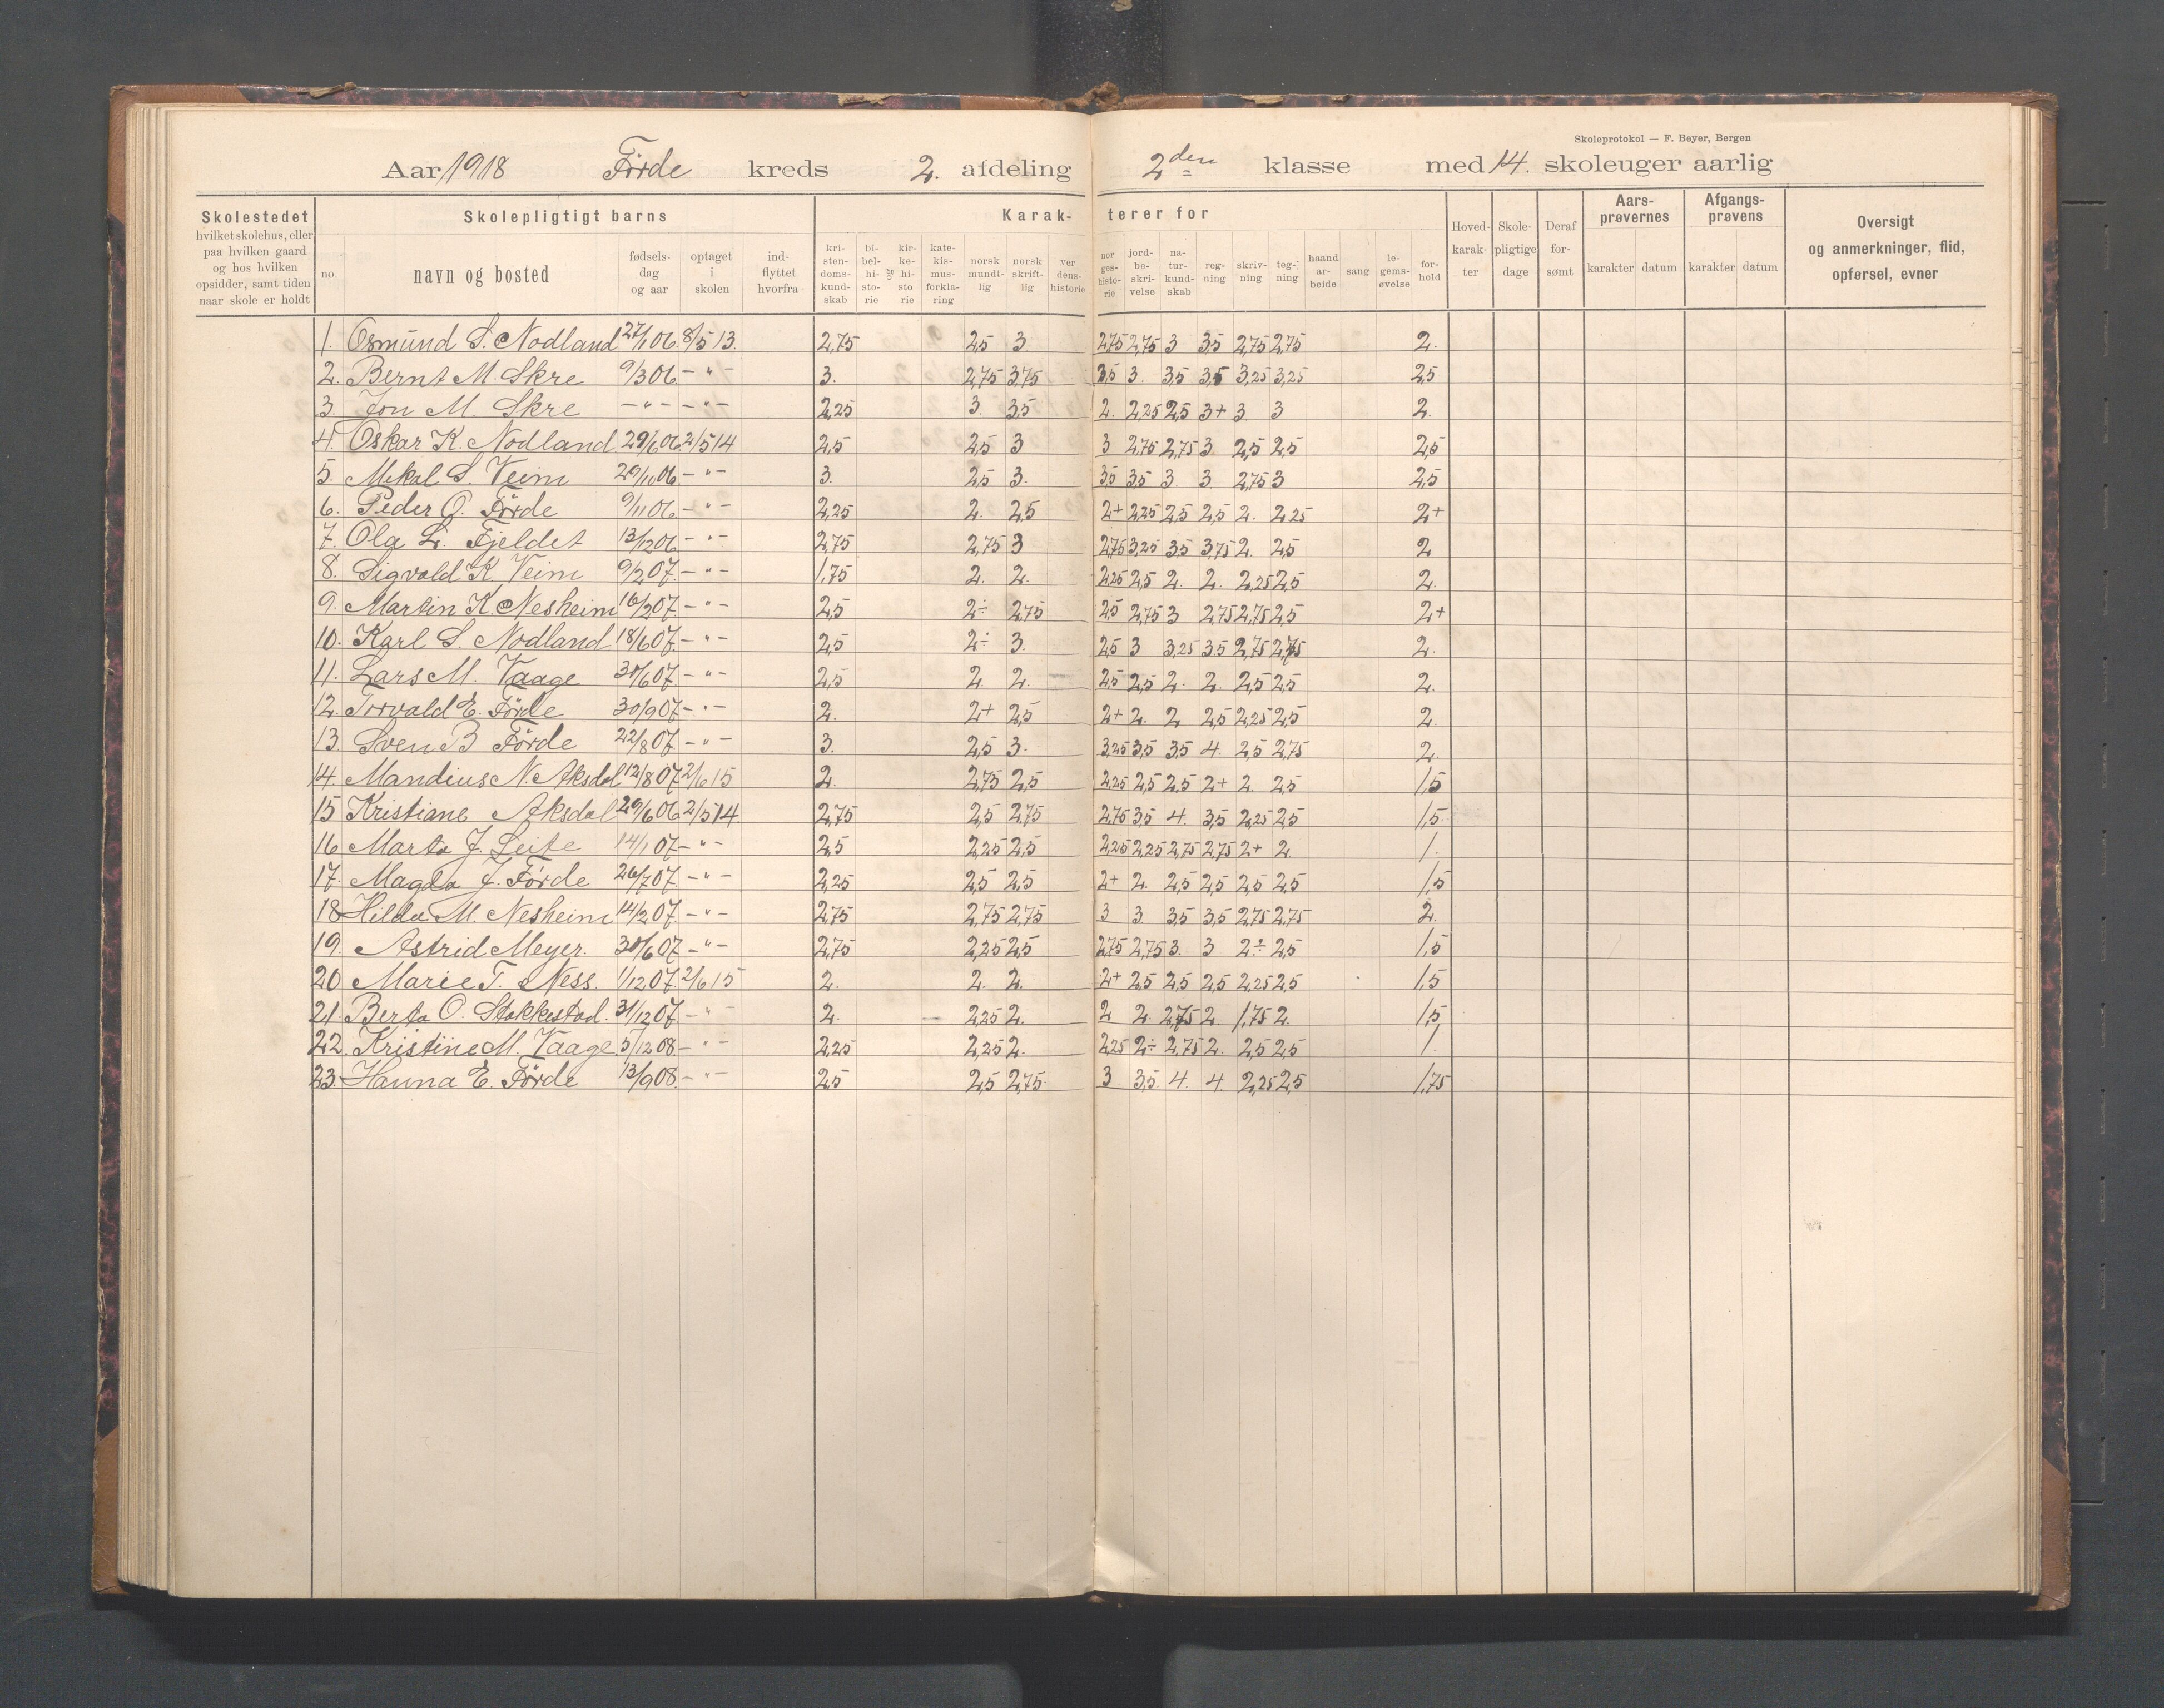 Skoleprotokol — F. Beyer, Bergen
Aar 1918 Förde kreds 2. afdeling 2den klasse med 14. skoleuger aarlig
Skolestedet hvilket skolehus, eller paa hvilken gaard og hos hvilken opsidder, samt tiden naar skole er holdt
Skolepligtigt barns
no. navn og bosted fødsels- dag og aar optaget i skolen ind- flyttet hvorfra
Karak- terer for
kri- sten- doms- kund- skab bi- bel- hi- sto- rie og kir- ke- hi- sto rie kate- kis- mus- forkla- ring norsk mundt- lig norsk skrift- lig ver dens- historie nor ges- histo- rie jord- be- skri- velse na- tur- kund- skab reg- ning skriv- ning teg- ning haand ar- beide sang le- gems- øvelse for- hold
Hoved- karak- ter Skole- pligtige dage Deraf for- sømt
Aars- prøvernes karakter datum
Afgangs- prøvens karakter datum
Oversigt og anmerkninger, flid, opførsel, evner
1. Osmund S. Nodland 27/1 06. 8/5 13. 2,75 2,5 3. 2,75 2,75 3 3,5 2,75 2,75 2.
2. Bernt M. Skre 9/3 06. - " - 3. 2,75 3,75 3,5 3. 3,5 3,5 3,25 3,25 2,5
3. Jon M. Skre - " - - " - 2,25 3. 3,5 2. 2,25 2,5 3+ 3. 3 2.
4. Oskar K. Nodland. 29/6 06. 2/5 14 2,5 2,5 3 3 2,75 2,75 3. 2,5 2,5 2,5
5. Mikal S. Veim 29/10 06. - " - 3. 2,5 3. 3,5 3,5 3. 3. 2,75 3 2,5
6. Peder O. Förde 9/11 06. - " - 2,25 2. 2,5 2+ 2,25 2,5 2,5 2. 2,25 2+
7. Ola L. Fjeldet 13/12 06. - " - 2,75 2,75 3 2,75 3,25 3,5 3,75 2. 2,5 2
8. Sigvald K. Veim 9/2 07. - " - 1,75 2. 2. 2,25 2,5 2. 2. 2,25 2,5 2.
9. Martin K. Nesheim 16/2 07. - " - 2,5 2÷ 2,75 2,5 2,75 3 2,75 2,75 2,5 2+
10. Karl S. Nodland 18/6 07. - " - 2,5 2÷ 3. 2,5 3 3,25 3,5 2,75 2,75 2.
11. Lars M. Vaage 30/6 07. - " - 2,5 2. 2. 2,5 2,5 2. 2. 2,5 2,5 2.
12. Torvald E. Förde 30/9 07. - " - 2. 2+ 2,5 2+ 2. 2 2,5 2,25 2,5 2.
13. Sven B Förde 22/8 07. - " - 3. 2,5 3. 3,25 3,5 3,5 4. 2,5 2,75 2.
14. Mandius N. Aksdal 12/8 07. 2/6 15 2. 2,75 2,5 2,25 2,5 2,5 2+ 2. 2,5 1,5
15 Kristiane Aksdal 29/6 06. 2/5 14. 2,75 2,5 2,75 2,75 3,5 4. 3,5 2,25 2,5 1,5.
16 Marta J. Leite 14/1 07. - " - 2,5 2,25 2,5 2,25 2,25 2,75 2,75 2+ 2. 1.
17. Magda J. Förde 26/7 07. - " - 2,25 2,5 2,5 2+ 2. 2,5 2,5 2,5 2,5 1,5
18 Hilda M. Nesheim 14/2 07. - " - 2,75 2,75 2,75 3 3. 3,5 3,5 2,75 2,75 2.
19. Astrid Meyer. 30/6 07. - " - 2,75 2,25 2,5 2,75 2,75 3. 3 2÷ 2,5 1,5
20 Marie T. Ness. 1/12 07. 2/6 15 2. 2. 2. 2+ 2,5 2,5 2,5 2,25 2,5 1,5
21. Berta O. Stakkestad. 31/12 07. - " - 2. 2,25 2. 2 2. 2,75 2. 1,75 2. 1,5
22. Kristine M. Vaage 5/12 08. - " - 2,25 2,25 2. 2,25 2÷ 2,75 2. 2,5 2,5 1.
23. Hanna E. Förde 13/9 08. - " - 2,5 2,5 2,75. 3 3,5. 4. 4. 2,25 2,5 1,75